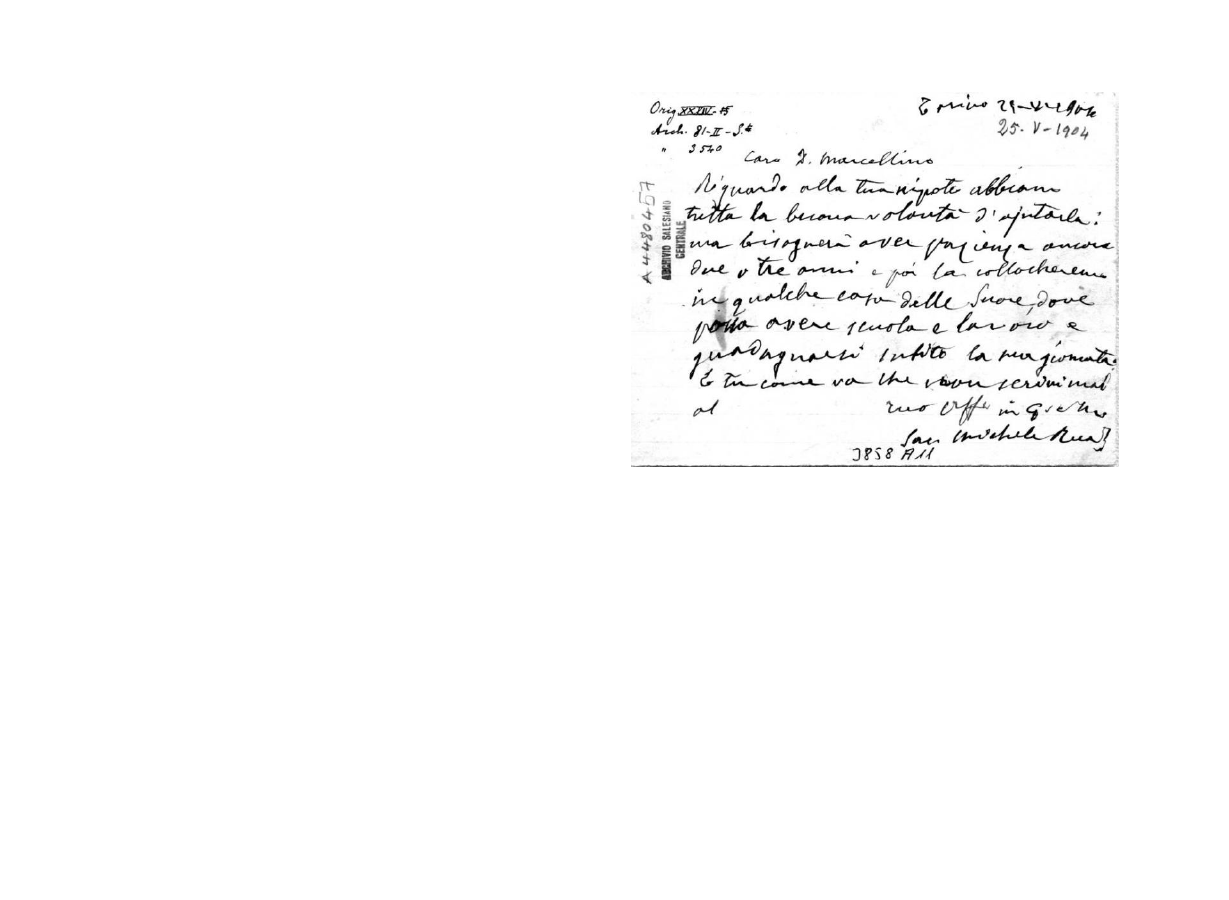 Orig XXXIV-
Arch. 81-II-S.
" 3540
Torino 25-V-1904
25-V-1904
Caro D. Marcellino
Riguardo alla tua nipote abbiamo
tutta la buona volontà d'ajutarla:
ma bisognerà aver pazienza ancora
due o tre anni e poi la collocheremo
in qualche casa delle Suore, dove
possa avere scuola e lavoro e
guadagnarsi subito la sua giornata.
E tu come va che non scrivi mai
al tuo Aff in G e M
Sac Michele Rua
3858 A11
A4480457
ARCHIVIO SALESIANO
CENTRALE